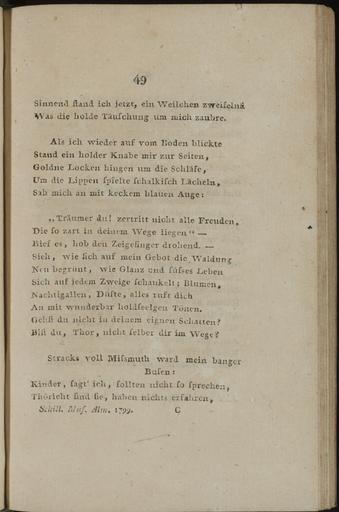 49
Sinnend ſtand ich jetzt, ein Weilchen zweifelnd
Was die holde Täuſchung um mich zaubre.
Als ich wieder auf vom Boden blickte
Stand ein holder Knabe mir zur Seiten,
Goldne Locken hingen um die Schläfe,
Um die Lippen ſpielte ſchalkiſch Lächeln,
Sah mich an mit keckem blauen Auge:
„Träumer du! zertritt nicht alle Freuden,
Die ſo zart in deinem Wege liegen“ —
Rief es, hob den Zeigefinger drohend. —
Sieh, wie ſich auf mein Gebot die Waldung
Neu begrünt, wie Glanz und ſüſses Leben
Sich auf jedem Zweige ſchaukelt; Blumen,
Nachtigallen, Düfte, alles ruft dich
An mit wunderbar holdſeelgen Tönen.
Gehſt du nicht in deinem eignen Schatten?
Biſt du, Thor, nicht ſelber dir im Wege?
Stracks voll Miſsmuth ward mein banger
Buſen:
Kinder, ſagt' ich, ſollten nicht ſo ſprechen,
Thöricht ſind ſie, haben nichts erfahren,
Schill. Muſ. Alm. 1799. C